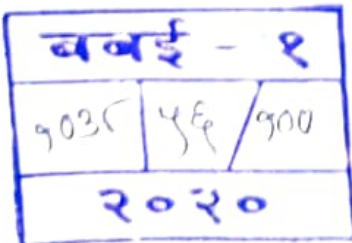 बबई - १
१०३८ ५६/१००
२०२०